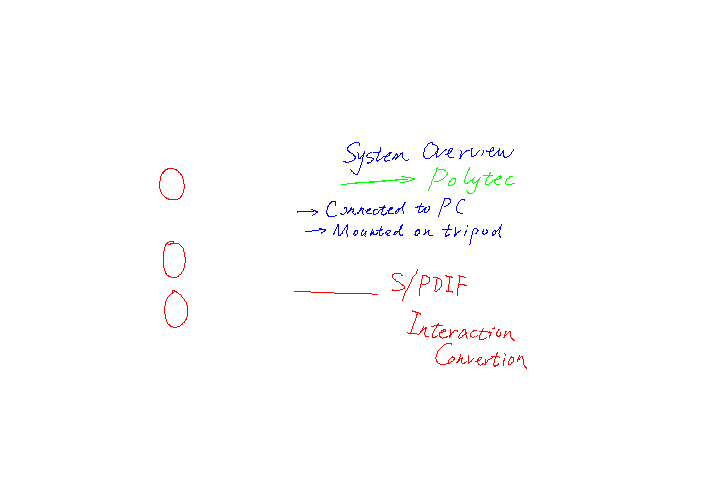 System Overview
→ Polytec
→ Connected to PC
→ Mounted on tripod
S/PDIF
Interaction
Convertion